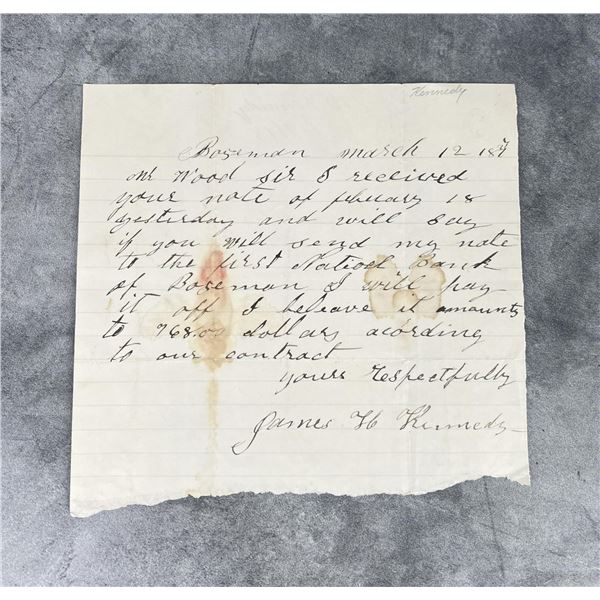 Kennedy
Boseman march 12 187
Mr Wood sir I received
your note of febuary 18
yesterday and will say
if you will send my note
to the first Nationel Bank
of Boseman I will pay
it off I beleave it amounts
to 768.00 dollars acording
to our contract
yours respectfully
James H Kennedy